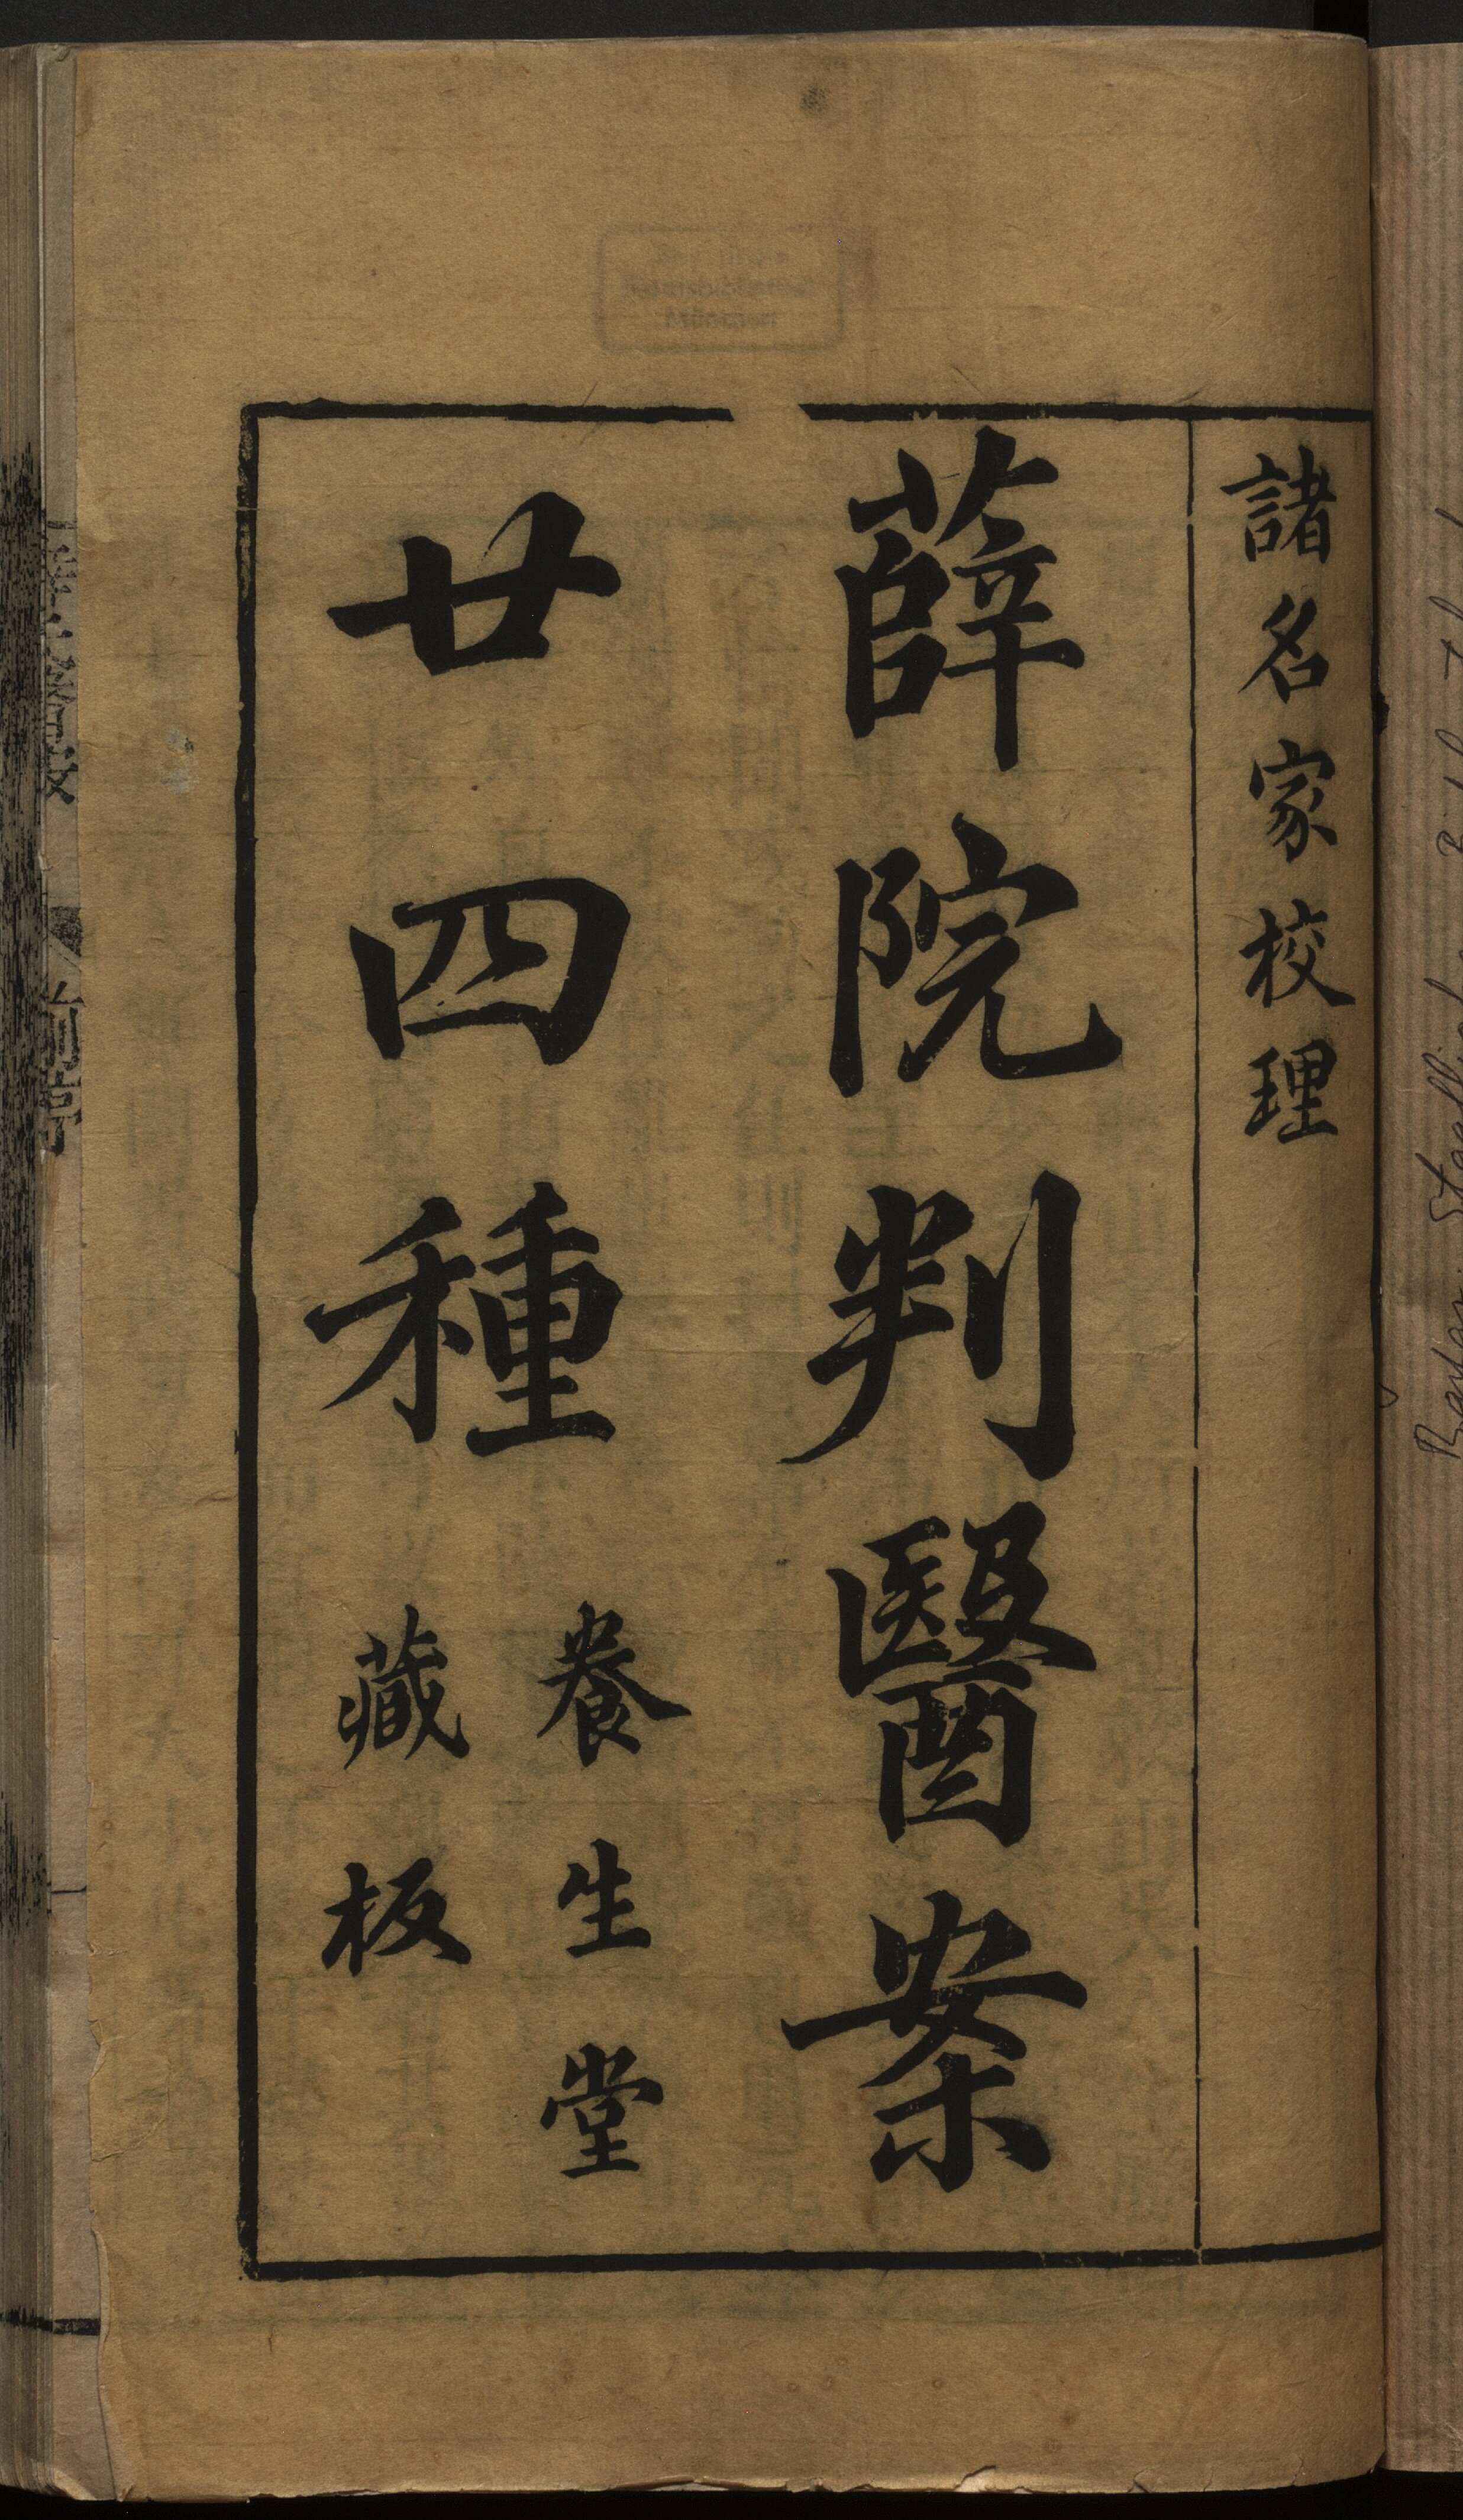 諸名家校理
薛院判醫案
廿四種
養生堂
藏板